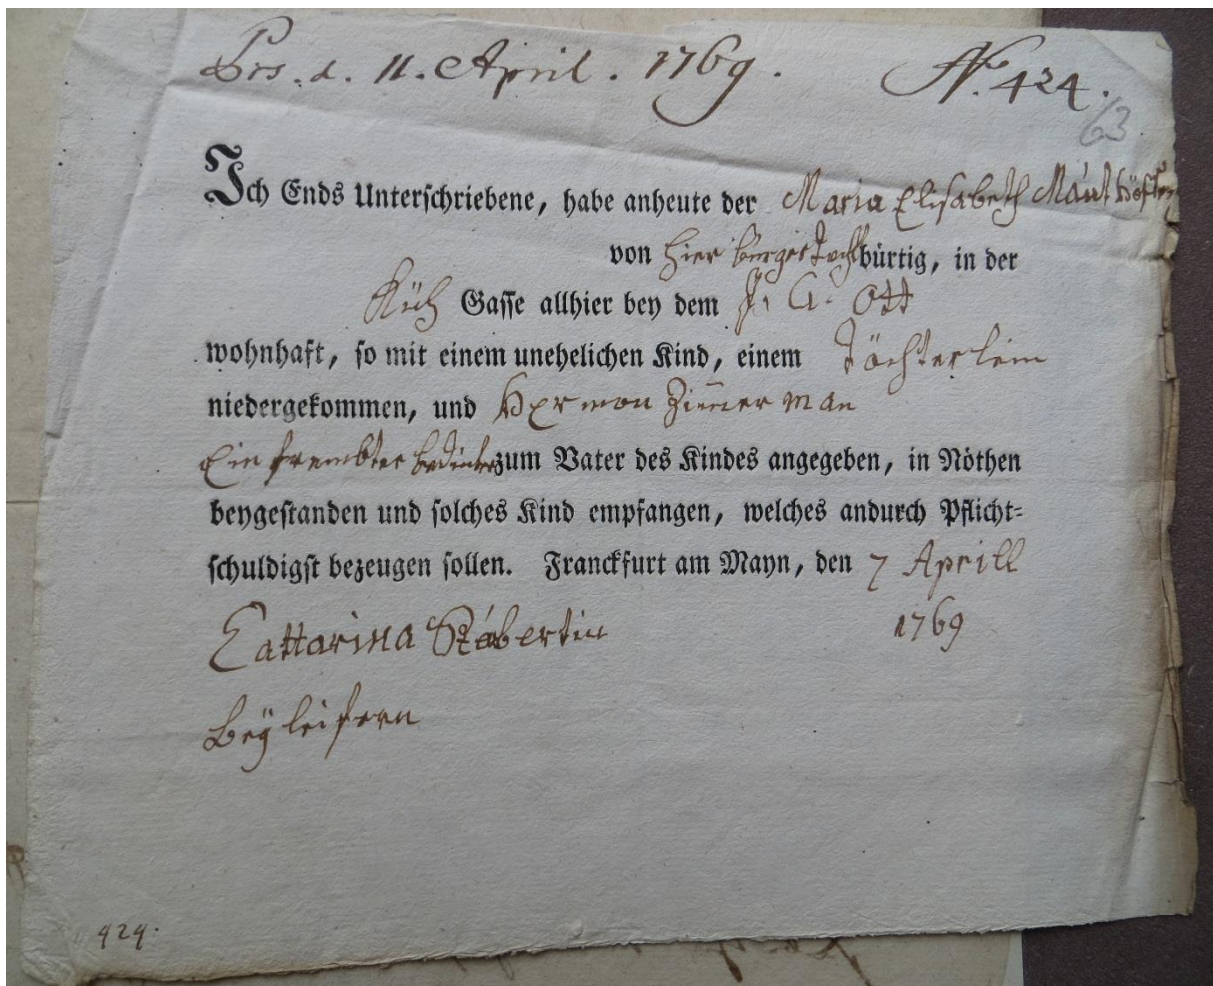 Prs. d. 11. April. 1769.
N. 424.
63
Ich Ends Unterschriebene, habe anheute der Maria Elisabeth
von hier bürgers Tochter bürtig, in der
Gasse allhier bey dem J. C. Ott
wohnhaft, so mit einem unehelichen Kind, einem Töchterlein
niedergekommen, und Herman Zim̅erman
Ein frembter bedienter zum Vater des Kindes angegeben, in Nöthen
beygestanden und solches Kind empfangen, welches andurch Pflicht-
schuldigst bezeugen sollen. Franckfurt am Mayn, den 7 Aprill
1769
Cattarina
424.